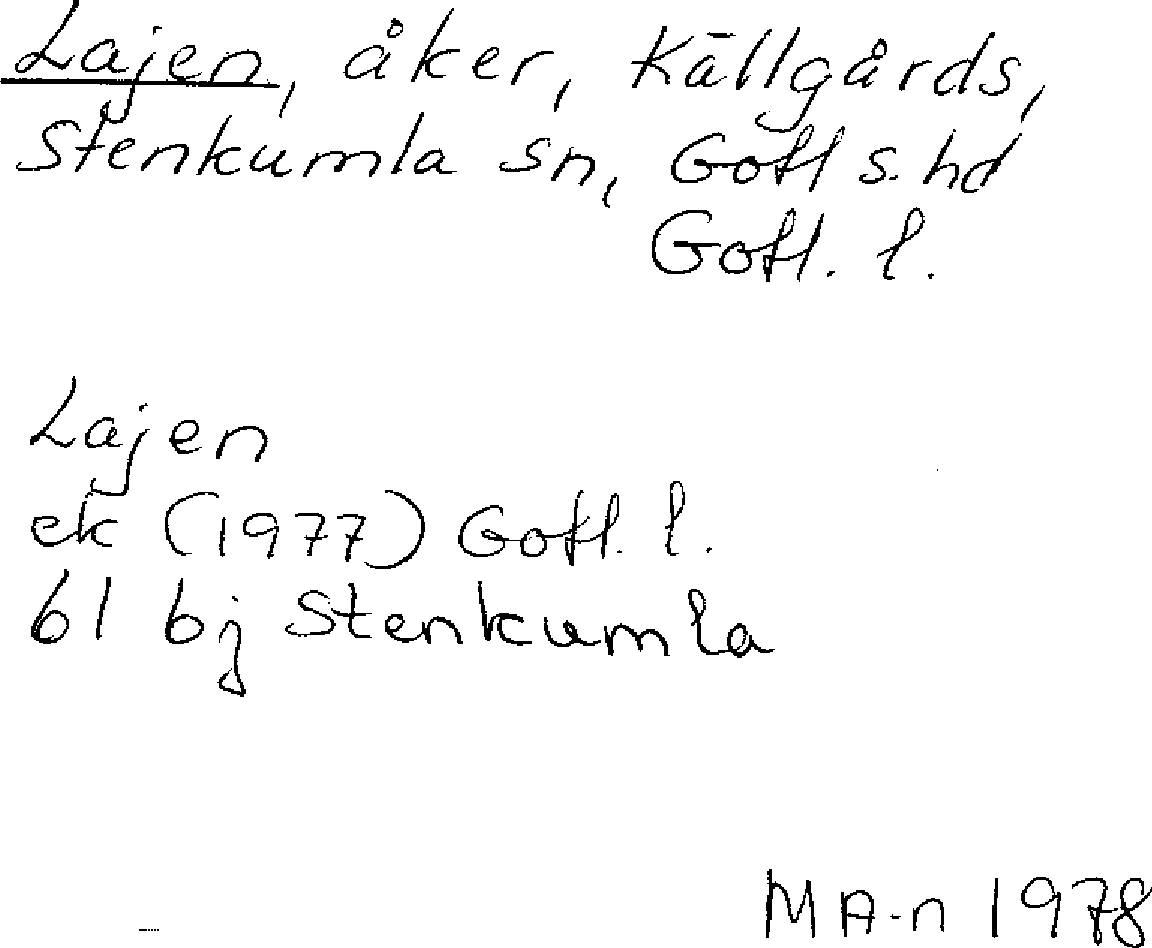 Lajen, åker, Källgårds,
Stenkumla sn, Gotl s. hd
Gotl. l.
Lajen
ek (1977) Gotl. l.
61 bj Stenkumla
MA-n 1978